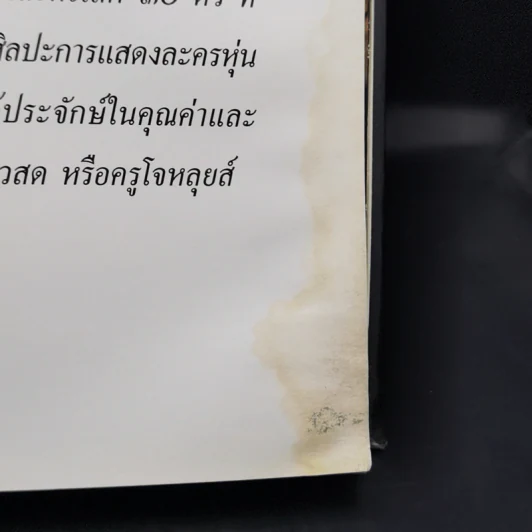 ศิลปะการแสดงละครหุ่น
ประจักษ์ในคุณค่าและ
วสด หรือครูโจหลุยส์